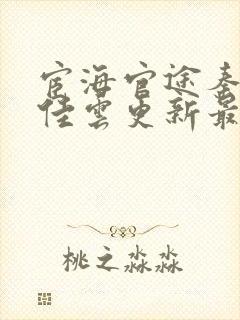 宦海官途秦
佳云更新最
桃之淼淼